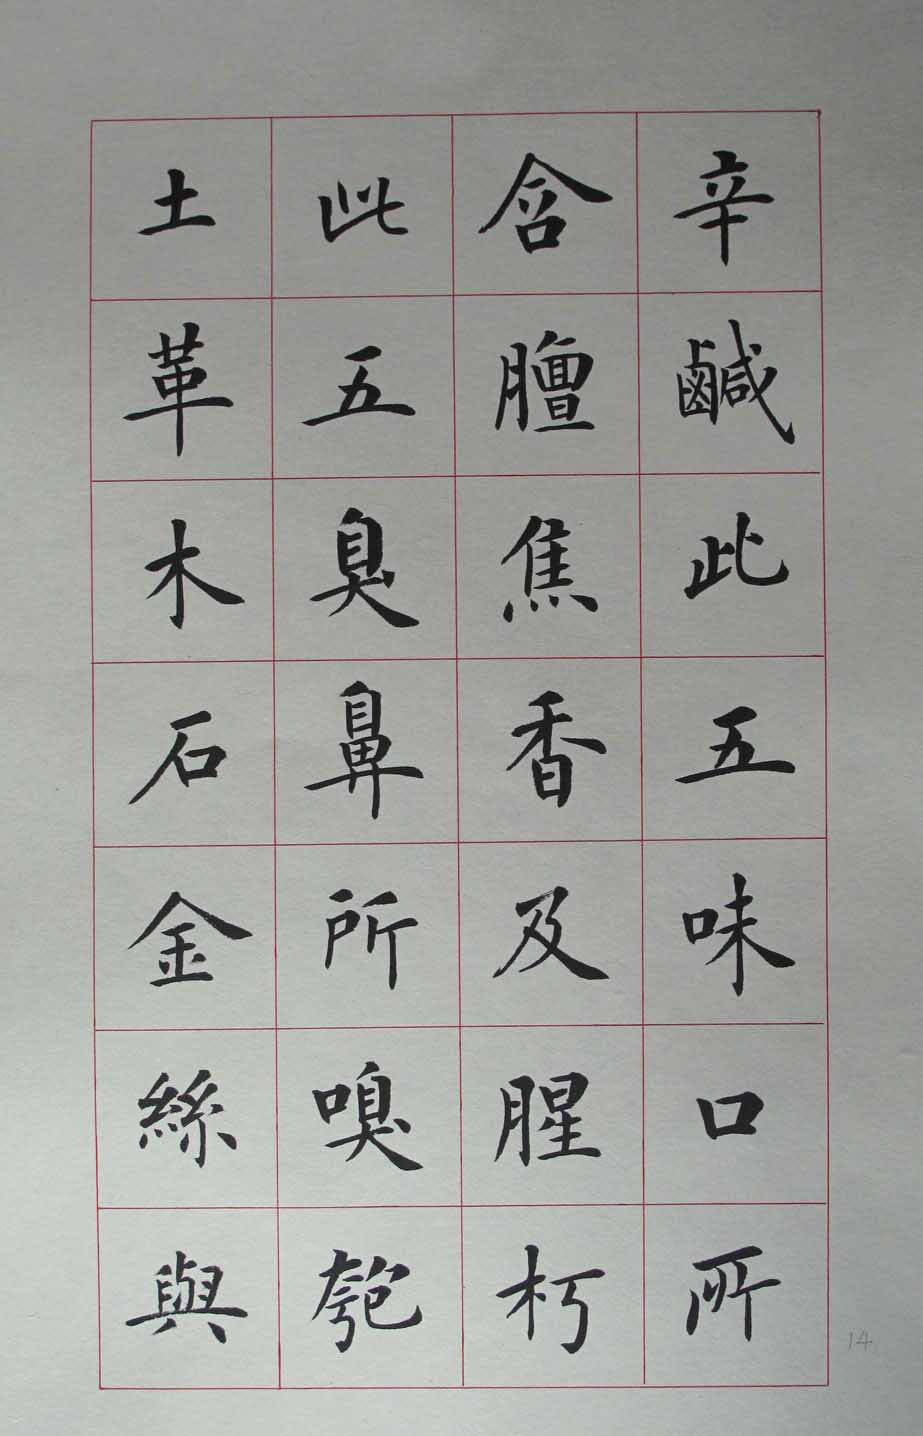 辛鹹此五味口所
含膻焦香及腥朽
此五臭鼻所嗅匏
土革木石金絲與
14